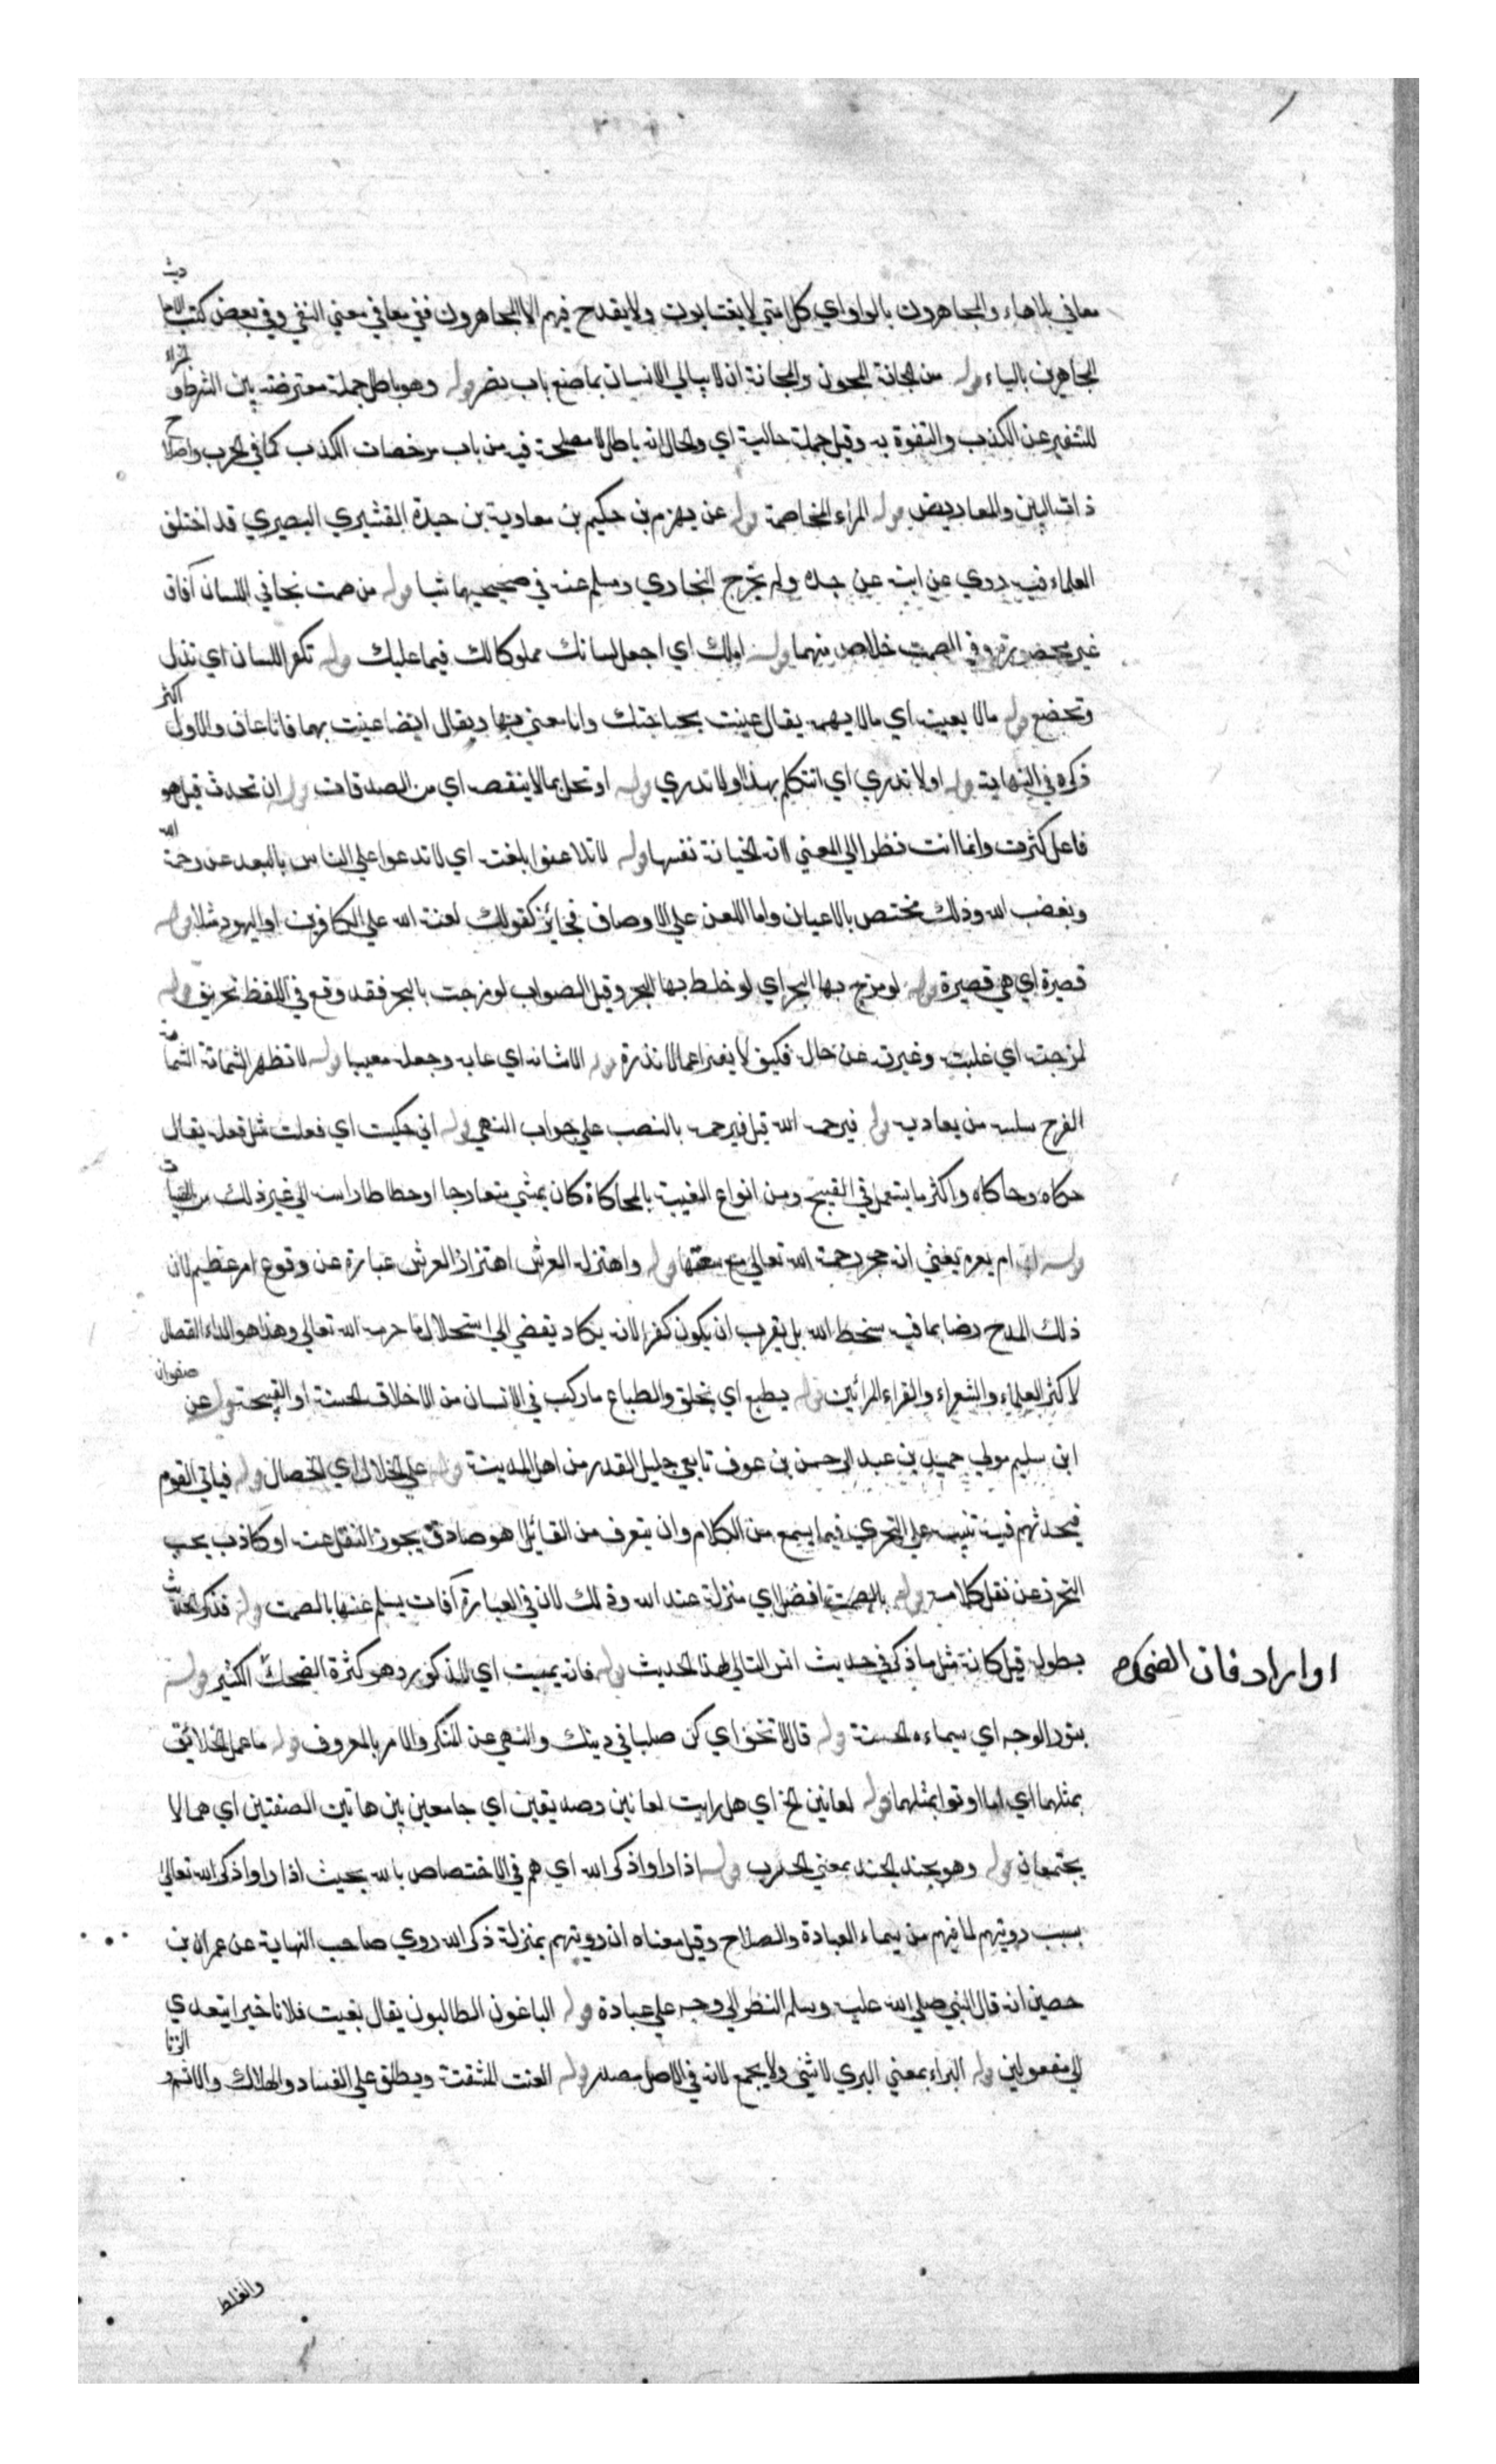 معافي بلا هاء والمجاهرون بالواو اي كل امتي لا يغتابون ولا يقدح فيهم الا المجاهرون ففي معافي معني النفي وفي بعض كتب الاحاديث
المجاهرين بالياء قوله من المجانة المجون والمجانة ان لا يبالي الانسان بما صنع باب نصر قوله وهو باطل جملة معترضة بين الشرط والجزاء
للتنفير عن الكذب والتفوه به وقيل جملة حالية اي والحال انه باطل لا مصلحة فيه من باب مرخصات الكذب كما في الحرب واصلاح
ذات البين والمعاريض قوله المراء المخاصمة قوله عن بهز بن حكيم بن معاوية بن حيدة القشيري البصيري قد اختلف
العلماء فيه روي عن ابيه عن جده ولم يخرج البخاري ومسلم عنه في صحيحيهما شيا قوله من صمت نجا في اللسان آفات
غير محصورة وفي الصمت خلاص منهما قوله املك اي اجعل لسانك مملوكا لك فيما عليك قوله تكفر اللسان اي تذل
وتخضع قوله مالا يعنيه اي مالا يهمه يقال عنيت بحاجتك وانا معني بها ويقال ايضا عنيت بها فانا عان والاول اكثر
ذكره في النهاية قوله اولا تدري اي اتتكلم بهذا ولا تدري قوله او تحل بما لا ينقصه اي من الصدقات قوله ان تحدث قيل هو
فاعل كثرت وانما انث نظرا الي المعني لانه الخيانة نفسها قوله لا تلاعنوا بلعنة اي لا تدعوا علي الناس بالبعد عن رحمة الله
وبغضب الله وذلك مختص بالاعيان واما اللعن علي الاوصاف فجائز كقولك لعنة الله علي الكافرين او اليهود مثلا قوله
قصيرة اي هي قصيرة قوله لو مزج بها البحر اي لو خلط بها البحر وقيل الصواب لو مزجت بالبحر فقد وقع في اللفظ تحريف قوله
لمزجته اي غلبته وغيرته عن حاله فكيف لا يغير اعمالا نذرة قوله الا شانه اي عابه وجعله معيبا قوله لا تظهر الشماتة الشماتة
الفرح ببلية من يعاديه قوله فيرحمه الله قيل فيرحمه بالنصب علي جواب النهي قوله اني حكيت اي فعلت مثل فعله يقال
حكاه وحاكاه واكثر ما يستعمل في القبيح ومن انواع الغيبة بالمحاكاة كان يمشي متعارجا او مطاطا راسه الي غير ذلك من الهيات
قوله ام بعيره يعني انه حجر رحمة الله تعالي مع سعتها قوله واهتز له العرش اهتزاز العرش عبارة عن وقوع امر عظيم لان
ذلك المدح رضا بما فيه سخط الله بل يقرب ان يكون كفرا لانه يكاد يفضي الي استحلال ما حرمه الله تعالي وهذا هو الداء العضال
لاكثر العلماء والشعراء والقراء المرائين قوله يطبع اي يخلق والطباع ما ركب في الانسان من الاخلاق الحسنة او القبيحة قوله عن صفوان
ابن سليم مولي حميد بن عبد الرحمن بن عوف تابعي جليل القدر من اهل المدينة قوله علي الخلال اي الخصال قوله فياتي القوم
فيحدثهم فيه تنبيه علي التحري فيما يسمع من الكلام وان يتعرف من القائل اهو صادق يجوز النقل عنه او كاذب يجب
التحرز عن نقل كلامه قوله بالصمت افضل اي منزلة عند الله وذلك لان في العبارة آفات يسلم عنها بالصمت قوله فذكر الحديث
بطوله قيل كانه مثل ما ذكر في حديث انس التالي لهذا الحديث قوله فانه يميت اي المذكور وهو كثرة الضحك الكثير قوله
او ايراد فان الضحك
بنور الوجه اي سيماءه الحسنة قوله قال لا تخف اي كن صلبا في دينك والنهي عن المنكر والامر بالمعروف قوله ما عمل الخلائق
بمثلهما اي اما اوتوا بمثلهما قوله لعانين الخ اي هل رايت لعانين وصديقين اي جامعين بين هاتين الصفتين اي هما لا
يجتمعان قوله وهو يجبذ الجبذ بمعني الجذب قوله اذا راوا ذكر الله اي هم في الاختصاص بالله بحيث اذا راوا ذكر الله تعالي
بسبب رويتهم لما فيهم من سيماء العبادة والصلاح وقيل معناه ان رويتهم بمنزلة ذكر الله روي صاحب النهاية عن عمران بن
حصين انه قال النبي صلي الله عليه وسلم النظر الي وجه علي عبادة قوله الباغون الطالبون يقال بغيت فلانا خيرا يتعدي
الي مفعولين قوله البراء بمعني البري لا يثني ولا يجمع لانه في الاصل مصدر قوله العنت المشقة ويطلق علي الفساد والهلاك والاثم والزنا
والغلط